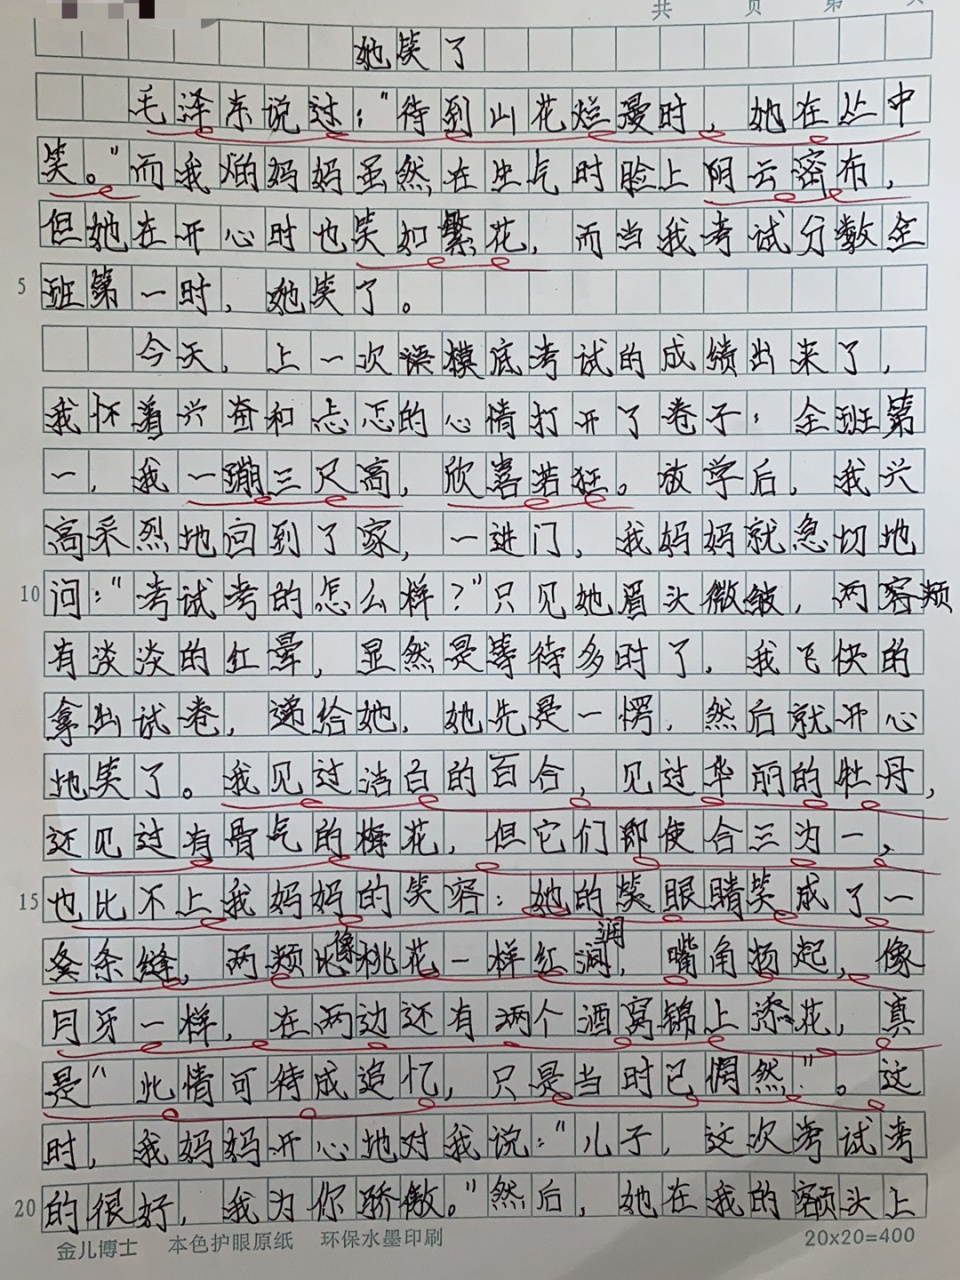 共 页 第 页
她笑了
毛泽东说过："待到山花烂漫时，她在丛中
笑。"而我的妈妈虽然在生气时脸上阴云密布，
但她在开心时也笑如繁花，而当我考试分数全
班第一时，她笑了。
5
今天，上一次语模底考试的成绩出来了，
我怀着兴奋和忐忑的心情打开了卷子：全班第
一，我一蹦三尺高，欣喜若狂。放学后，我兴
高采烈地回到了家，一进门，我妈妈就急切地
10 问："考试考的怎么样？"只见她眉头微皱，两容颊
有淡淡的红晕，显然是等待多时了。我飞快的
拿出试卷，递给她，她先是一愣，然后就开心
地笑了。我见过洁白的百合，见过华丽的牡丹，
还见过有骨气的梅花，但它们即使合三为一，
15 也比不上我妈妈的笑容：她的笑眼睛笑成了一
条条缝，两颊像桃花一样红润，嘴角扬起，像
月牙一样，在两边还有两个酒窝锦上添花，真
是"此情可待成追忆，只是当时已惘然"。这
时，我妈妈开心地对我说："儿子，这次考试考
20 的很好，我为你骄傲。"然后，她在我的额头上
金儿博士 本色护眼原纸 环保水墨印刷 20×20=400